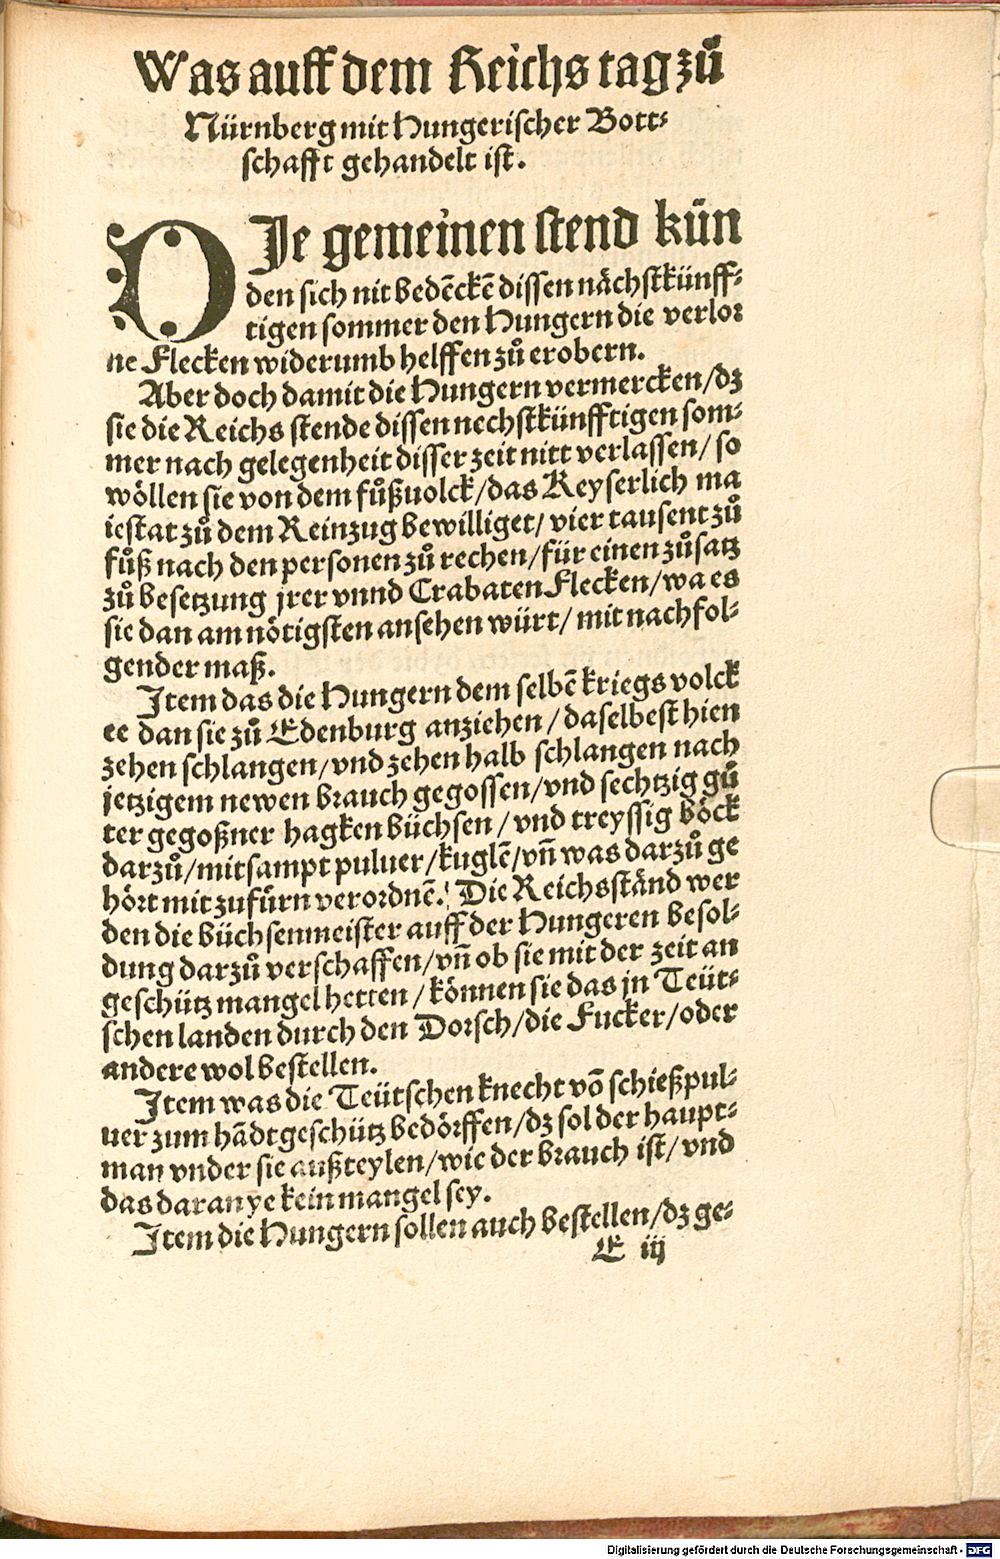 Was auff dem Reichs tag zů
Nürnberg mit Hungerischer Bott⸗
schafft gehandelt ist.
DJe gemeinen stend kün
den sich nit bedēckē dissen nächstkünff⸗
tigen sommer den Hungern die verlor
ne Flecken widerumb helffen zů erobern.
Aber doch damit die Hungern vermercken/dz
sie die Reichs stende dissen nechstkünfftigen som⸗
mer nach gelegenheit disser zeit nitt verlassen/ so
wöllen sie von dem fůßuolck/das Keyserlich ma
iestat zů dem Reinzug bewilliget/ vier tausent zů
fůß nach den personen zů rechen/für einen zůsatz
zů besetzung jrer vnnd Crabaten Flecken/wa es
sie dan am nötigsten ansehen würt/ mit nachfol⸗
gender maß.
Jtem das die Hungern dem selbē kriegs volck
ee dan sie zů Edenburg anziehen/daselbest hien
zehen schlangen/vnd zehen halb schlangen nach
jetzigem newen brauch gegossen/vnd sechtzig gů
ter gegoßner hagken büchsen/vnd treyssig böck
darzů/mitsampt puluer/kuglē/vn̄ was darzů ge
hört mit zufürn verordnē. Die Reichsständ wer
den die büchsenmeister auff der Hungeren besol⸗
dung darzů verschaffen/vn̄ ob sie mit der zeit an
geschütz mangel hetten/können sie das jn Teüt⸗
schen landen durch den Dorsch/die Fucker/oder
andere wol bestellen.
Jtem was die Teütschen knecht vō schießpul⸗
uer zum hādtgeschütz bedörffen/dz sol der haupt⸗
man vnder sie außteylen/wie der brauch ist/vnd
das daran ye kein mangel sey.
Jtem die Hungern sollen auch bestellen/dz ge⸗
E iij
Digitalisierung gefördert durch die Deutsche Forschungsgemeinschaft - DFG